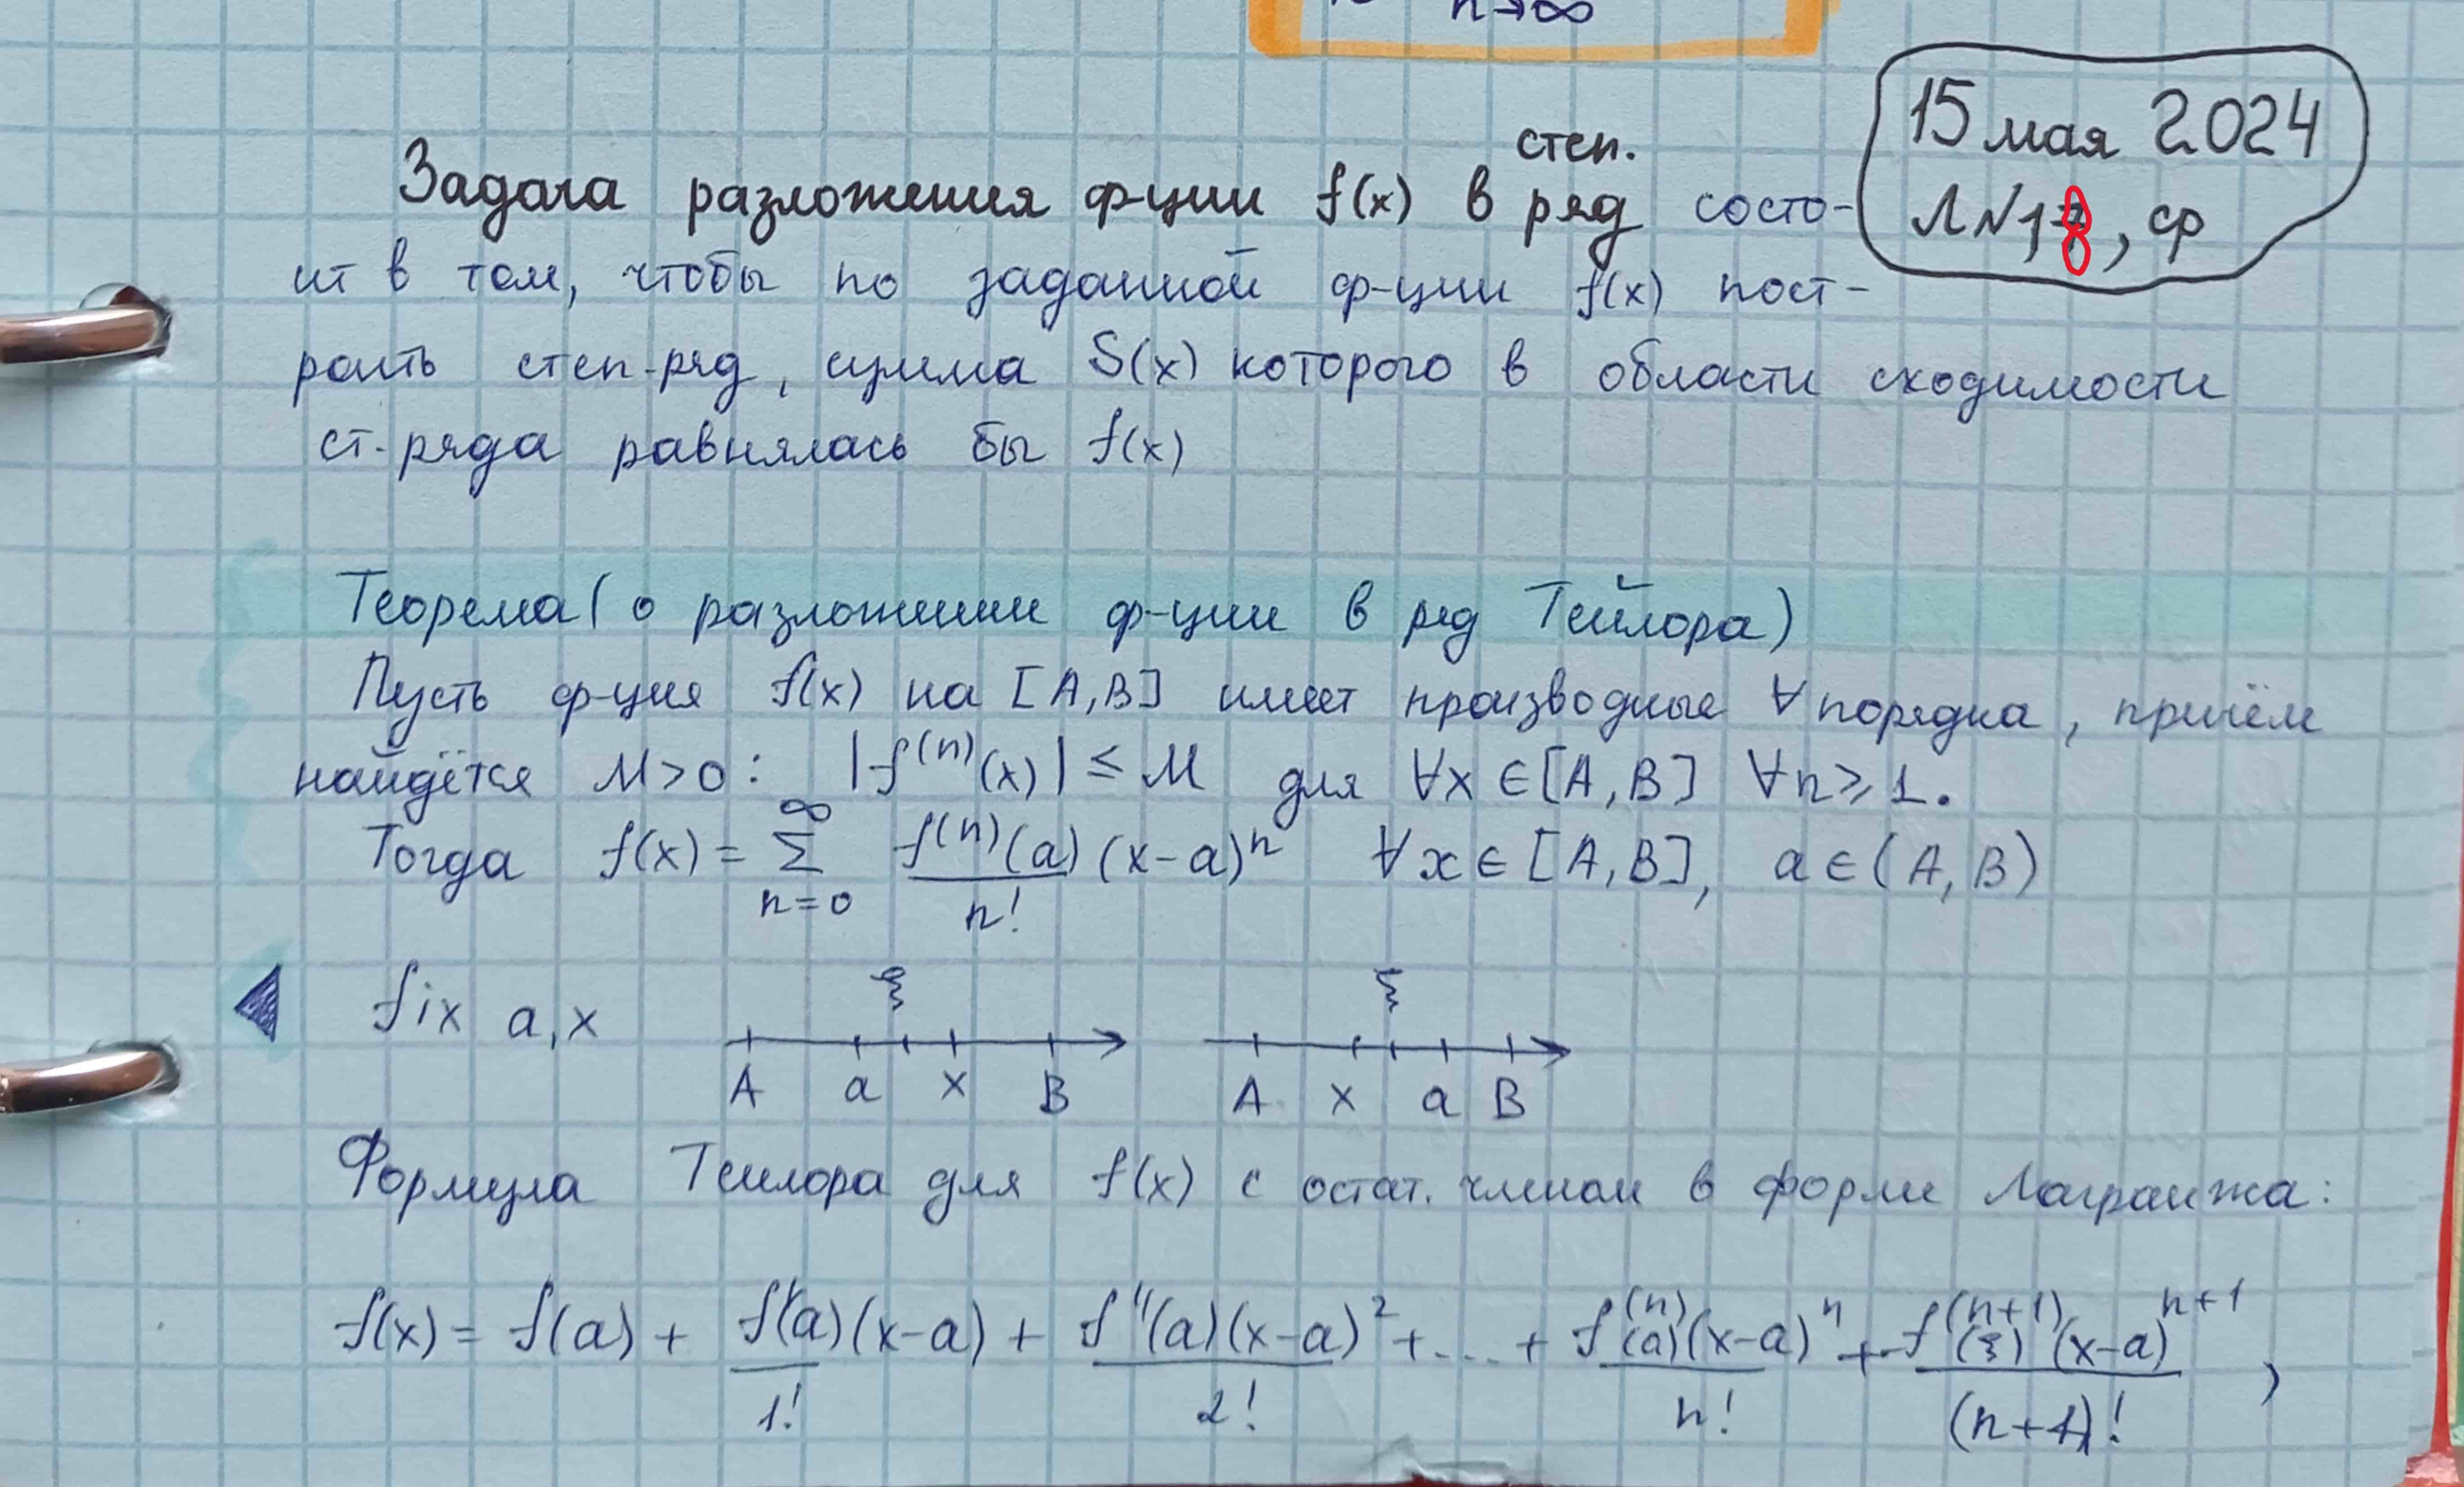 n→∞
15 мая 2024
Л N 18, ср
степ.
Задача разложения ф-ции f(x) в ряд состо-
ит в том, чтобы по заданной ф-ции f(x) пост-
роить степ-ряд, сумма S(x) которого в области сходимости
ст-ряда равнялась бы f(x)
Теорема (о разложении ф-ции в ряд Тейлора)
Пусть ф-ция f(x) на [A,B] имеет производные ∀ порядка, причём
найдётся M>0: |f⁽ⁿ⁾(x)| ≤ M для ∀x ∈ [A,B] ∀n ⩾ 1.
Тогда f(x) = ∑_{n=0}^{∞} f⁽ⁿ⁾(a)/n! (x-a)ⁿ ∀x ∈ [A,B], a ∈ (A,B)
fix a,x
ξ ξ
A a x B A x a B
Формула Тейлора для f(x) с остат. членом в форме Лагранжа:
f(x) = f(a) + f'(a)(x-a)/1! + f''(a)(x-a)²/2! + ... + f⁽ⁿ⁾(a)(x-a)ⁿ/n! + f⁽ⁿ⁺¹⁾(ξ)(x-a)ⁿ⁺¹/(n+1)! ,